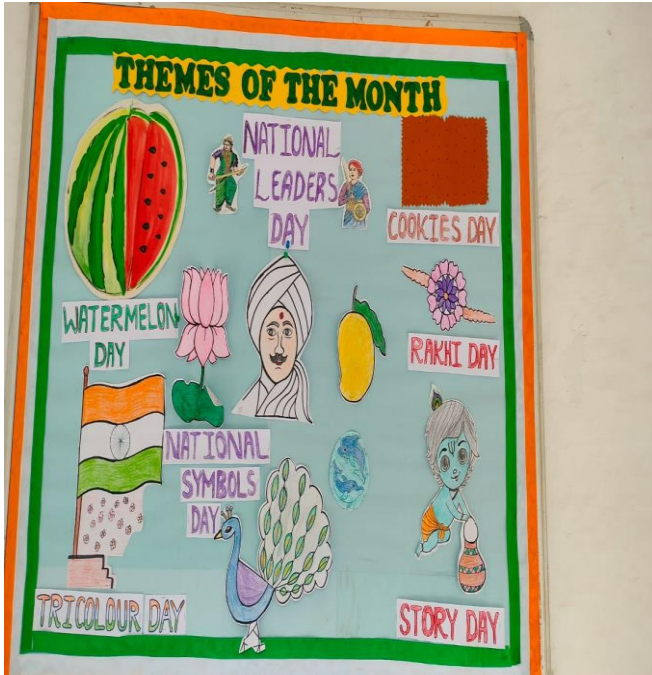 THEMES OF THE MONTH
NATIONAL
LEADERS
DAY
COOKIES DAY
WATERMELON
DAY
RAKHI DAY
NATIONAL
SYMBOLS
DAY
TRICOLOUR DAY
STORY DAY